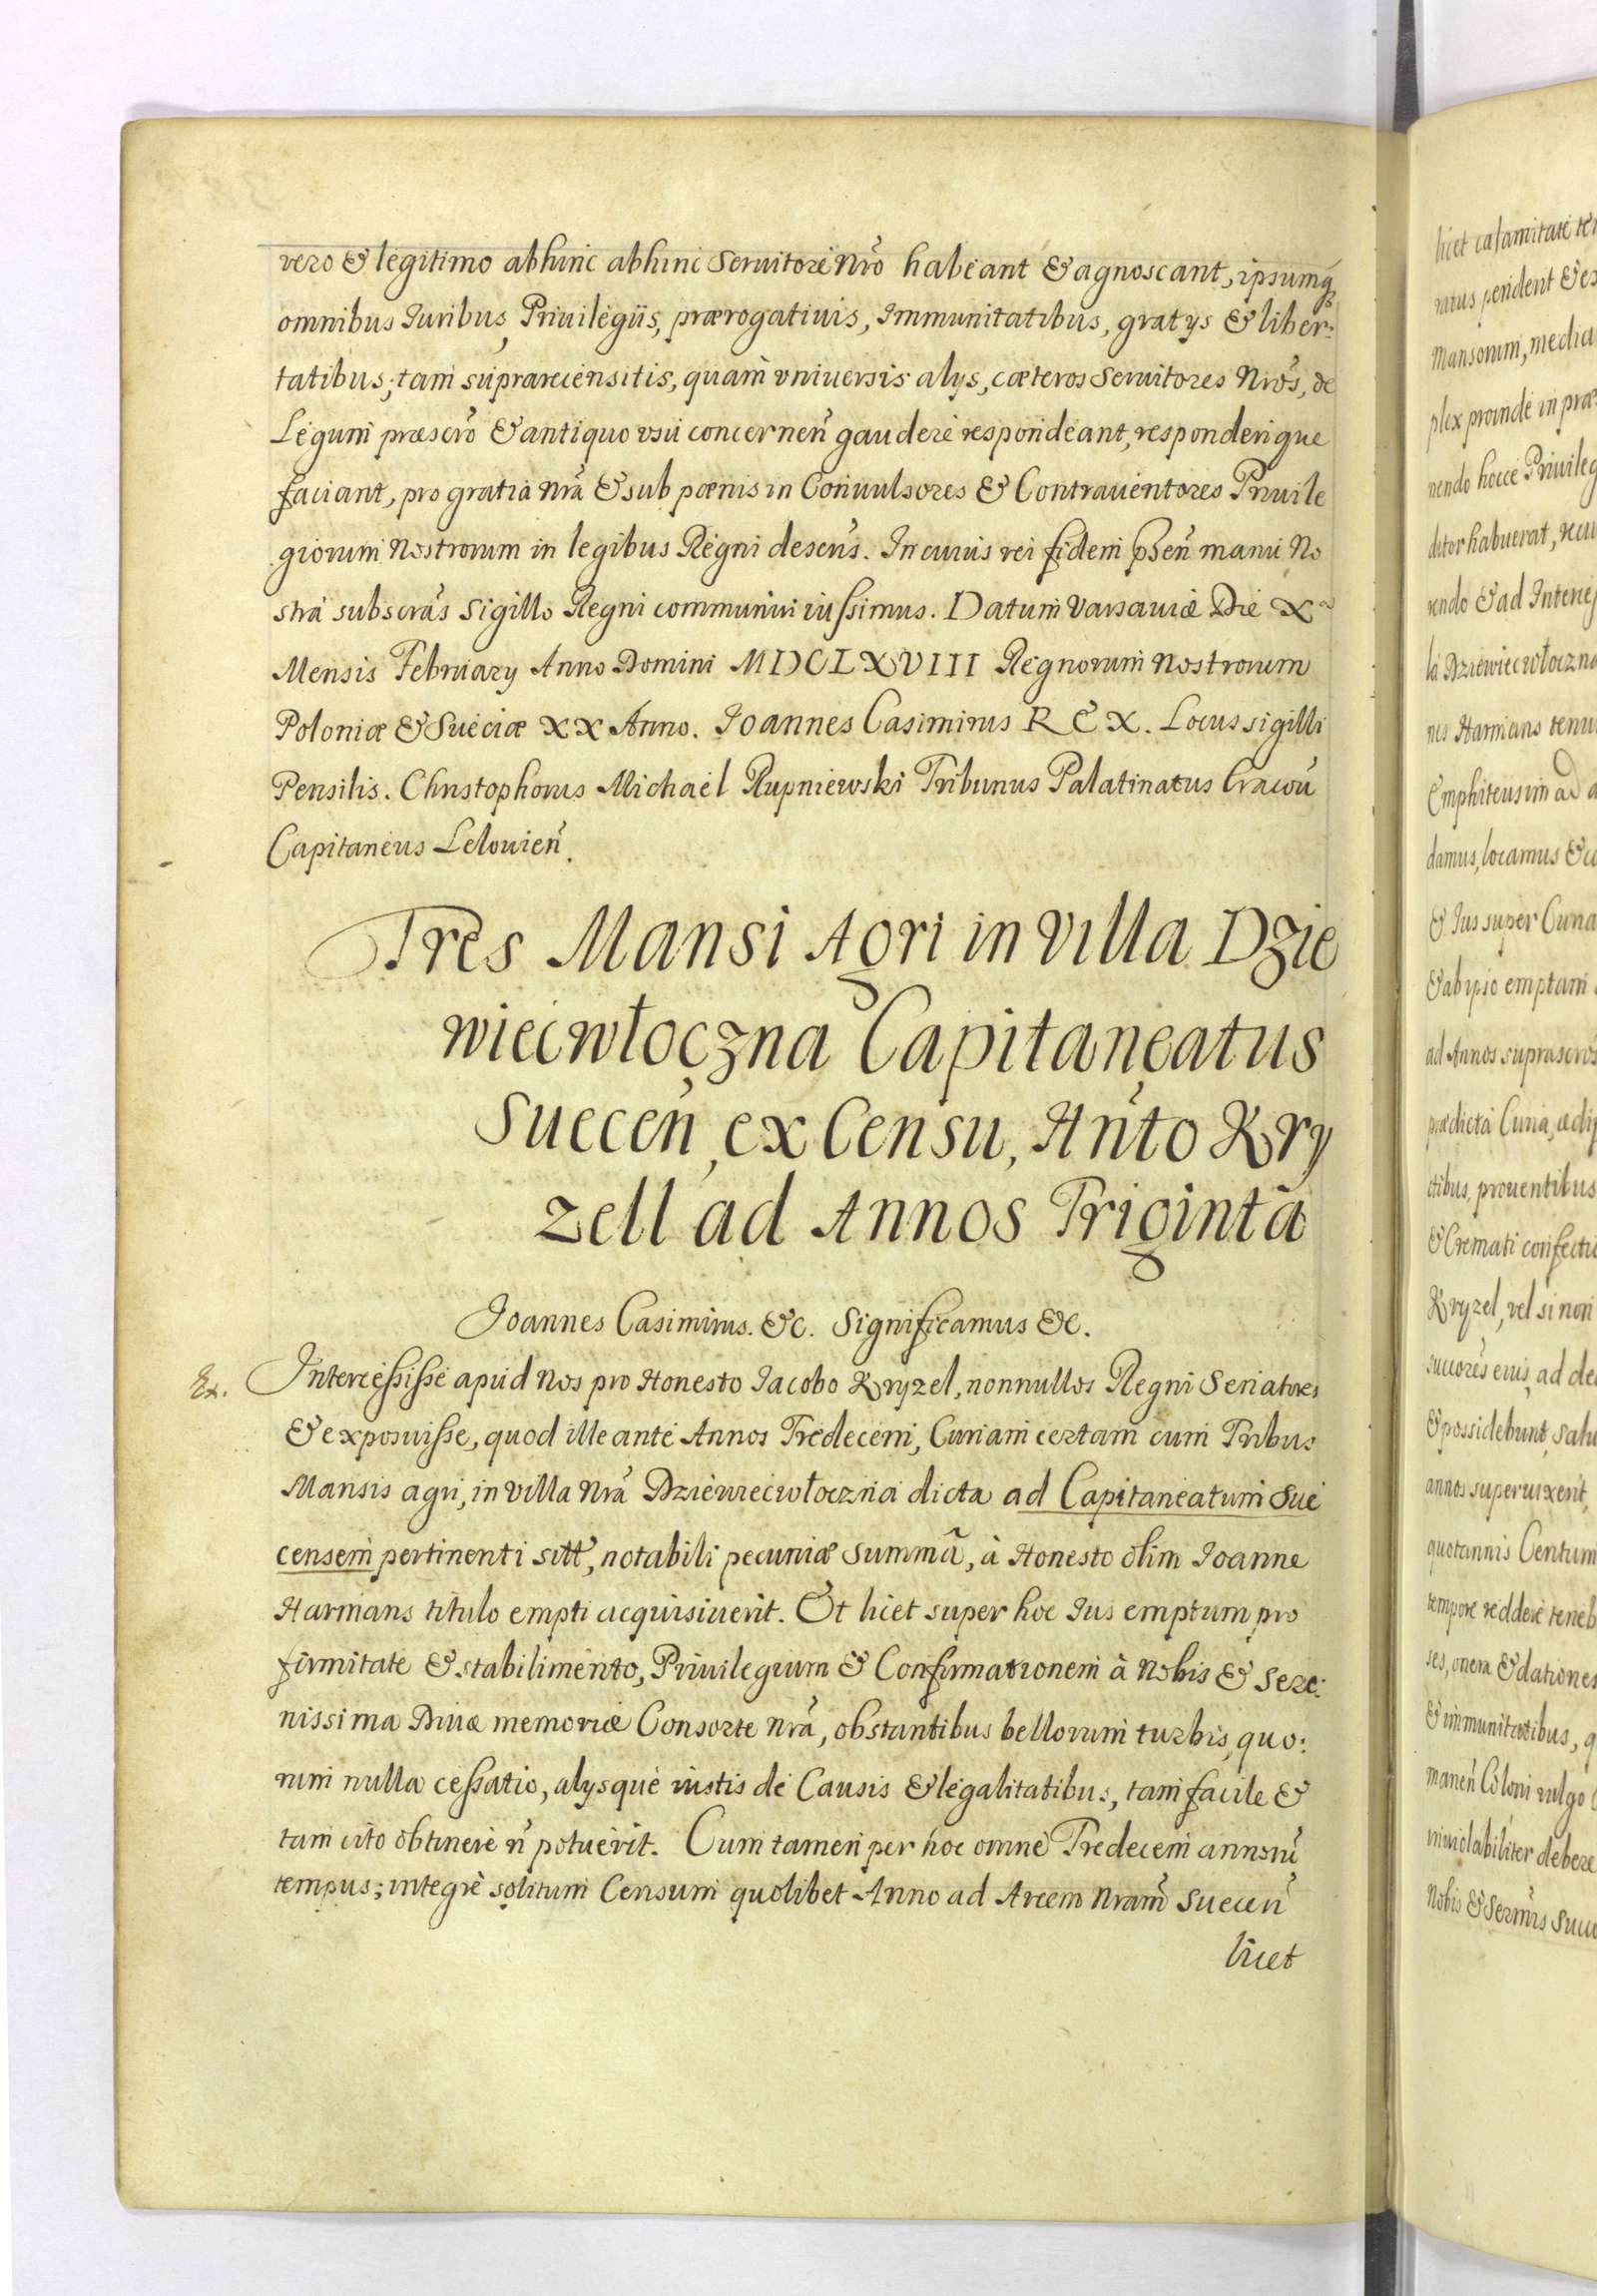 vero & legitimo abhinc abhinc Seruitore Nrõ habeant & agnoscant, ipsumq
omnibus Iuribus, Priuilegijs, prærogatiuis, Immunitatibus, gratijs & liber:
tatibus, tam suprarecensitis, quam vniuersis alijs, cæteros Seruitores Nrõs, de
Legum præscrõ & antiquo vsu concernen̄ gaudere respondeant, responderique
faciant, pro gratia nrã & sub pœnis in Conuulsores & Contrauentores Priuile
giorum Nostrorum in legibus Regni descrĩs. In cuius rei fidem p̃sen̄ manu No
stra subscrãs Sigillo Regni communiri iussimus. Datum Varsauiæ Die X
Mensis February Anno Domini MDCLXVIII Regnorum Nostrorum
Poloniæ & Sueciæ XX Anno. Ioannes Casimirus REX. Locus sigilli
Pensilis. Christophorus Michael Rupniewski Tribunus Palatinatus Cracou
Capitaneus Lelouien̄.
Tres Mansi Agri in Villa Dzie
wiecwłoczna Capitaneatus
Suecen̄, ex Censu, Hn̄to Kry
zell ad Annos Triginta
Ioannes Casimirus. &c. Significamus &c.
Ex. Intercessisse apud Nos pro Honesto Iacobo Kryzel, nonnullos Regni Senatores
& exposuisse, quod ille ante Annos Tredecem, Curiam certam cum Tribus
Mansis agri, in Villa Nrã Dziewiecwłoczna dicta ad Capitaneatum Sue
censem pertinenti sitã, notabili pecuniæ Summã, à Honesto olim Ioanne
Harmans titulo empti acquisiuerit. Et licet super hoc Ius emptum pro
firmitate & stabilimento, Priuilegium & Confirmationem à Nobis & Sere:
nissima Diuæ memoriæ Consorte nrã, obstantibus bellorum turbis, quo:
rum nulla cessatio, alysque iustis de Causis & legalitatibus, tam facile &
tam cito obtinere n̄ potuerit. Cum tamen per hoc omne Tredecem annorũ
tempus; integrè solitum Censum quolibet Anno ad Arcem Nram̃ Suecen̄
licet